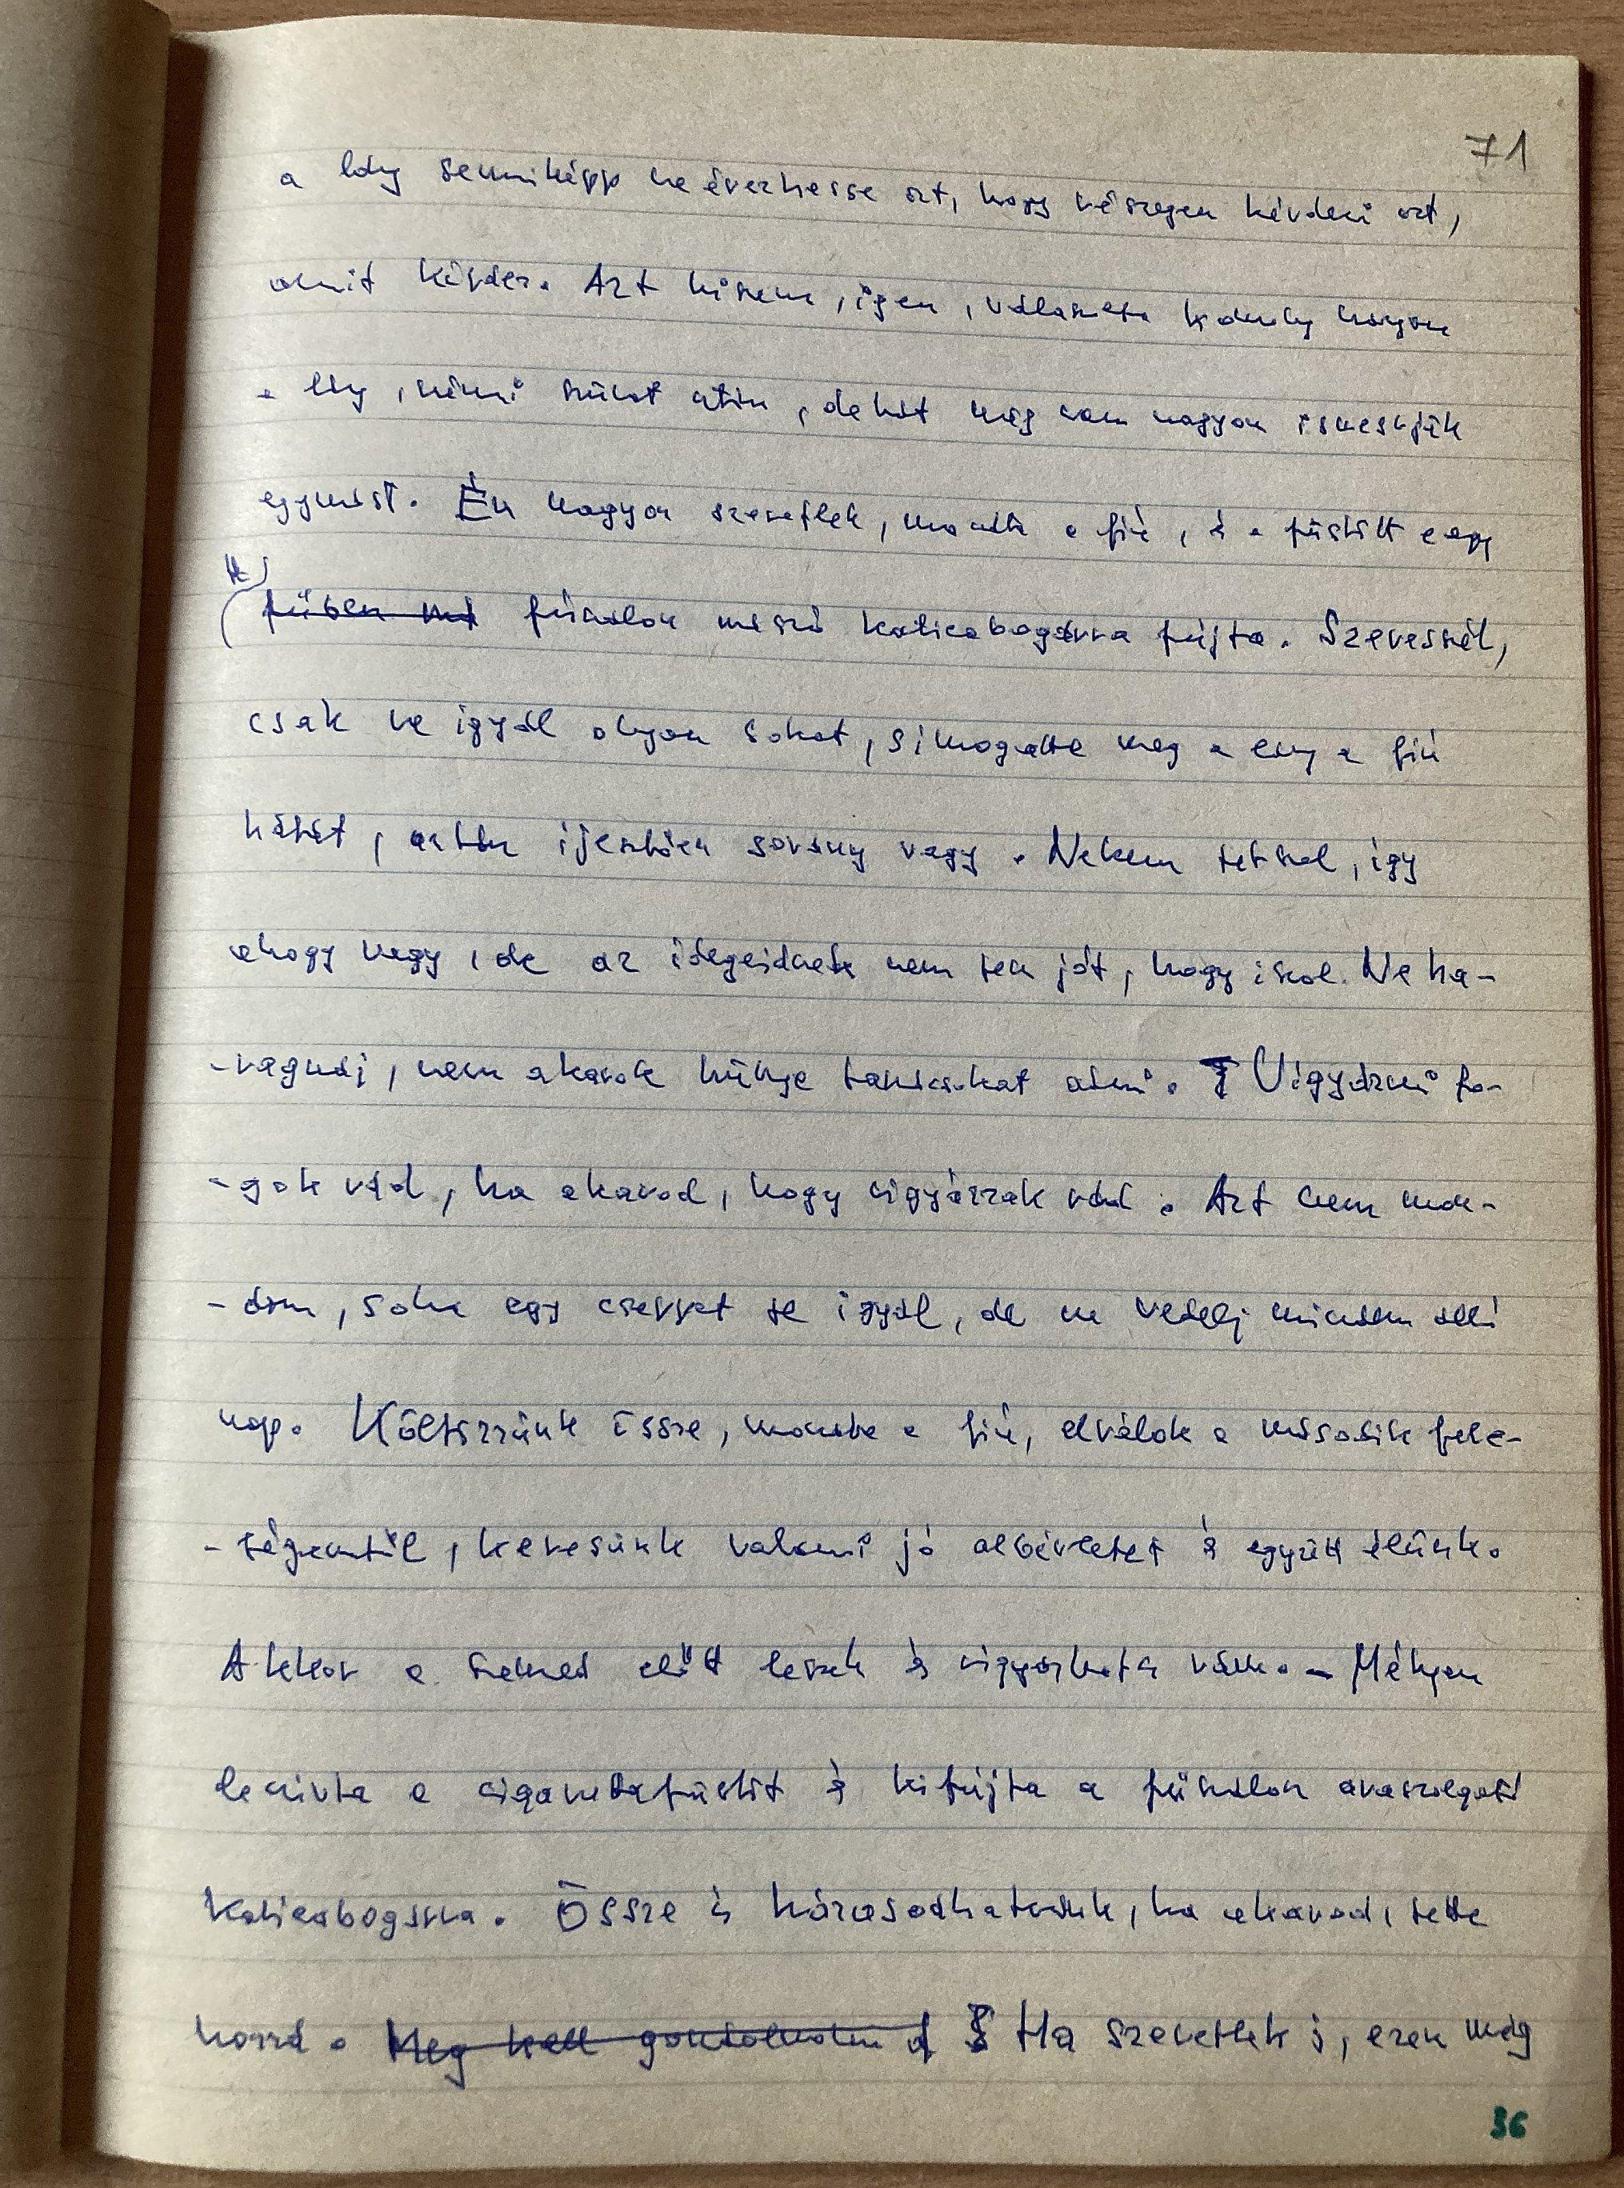 71
a lány semmiképp ne érezhesse azt, hogy részegen kérdezi azt,
amit kérdez. Azt hiszem, igen, válaszolta komoly hangon
a lány, némi szünet után, de hát még nem nagyon ismerjük
egymást. Én nagyon szeretlek, mondta a fiú, s a füstöt egy
fűben má fűszálon mászó katicabogárra fújta. Szeressél,
csak ne igyál olyan sokat, simogatta meg a lány a fiú
hátát, aztán ijesztően sovány vagy. Nekem tetszel, így
ahogy vagy, de az idegeidnek nem tesz jót, hogy iszol. Ne ha-
-ragudj, nem akarok hülye tanácsokat adni. Vigyázni fo-
-gok rád, ha akarod, hogy vigyázzak rád. Azt nem mon-
-dom, soha egy cseppet se igyál, de ne vedelj minden áldott
nap. Költözzünk össze, mondta a fiú, elválok a második fele-
-ségemtől, keresünk valami jó albérletet s együtt élünk.
Akkor a szemed előtt leszek s vigyázhatsz rám. – Mélyen
leszívta a cigarettafüstöt s kifújta a fűszálon araszolgató
katicabogárra. Össze is házasodhatunk, ha akarod, tette
hozzá. Meg kell gondolnom Ha szeretlek is, ezen még
36